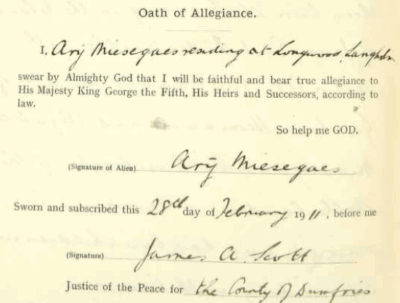 Oath of Allegiance.
I, Ary Miesegaes residing at Longwood, Langholm
swear by Almighty God that I will be faithful and bear true allegiance to
His Majesty King George the Fifth, His Heirs and Successors, according to
law.
So help me GOD.
(Signature of Alien) Ary Miesegaes
Sworn and subscribed this 28th day of February 1911, before me
(Signature) James A. Scott
Justice of the Peace for the County of Dumfries